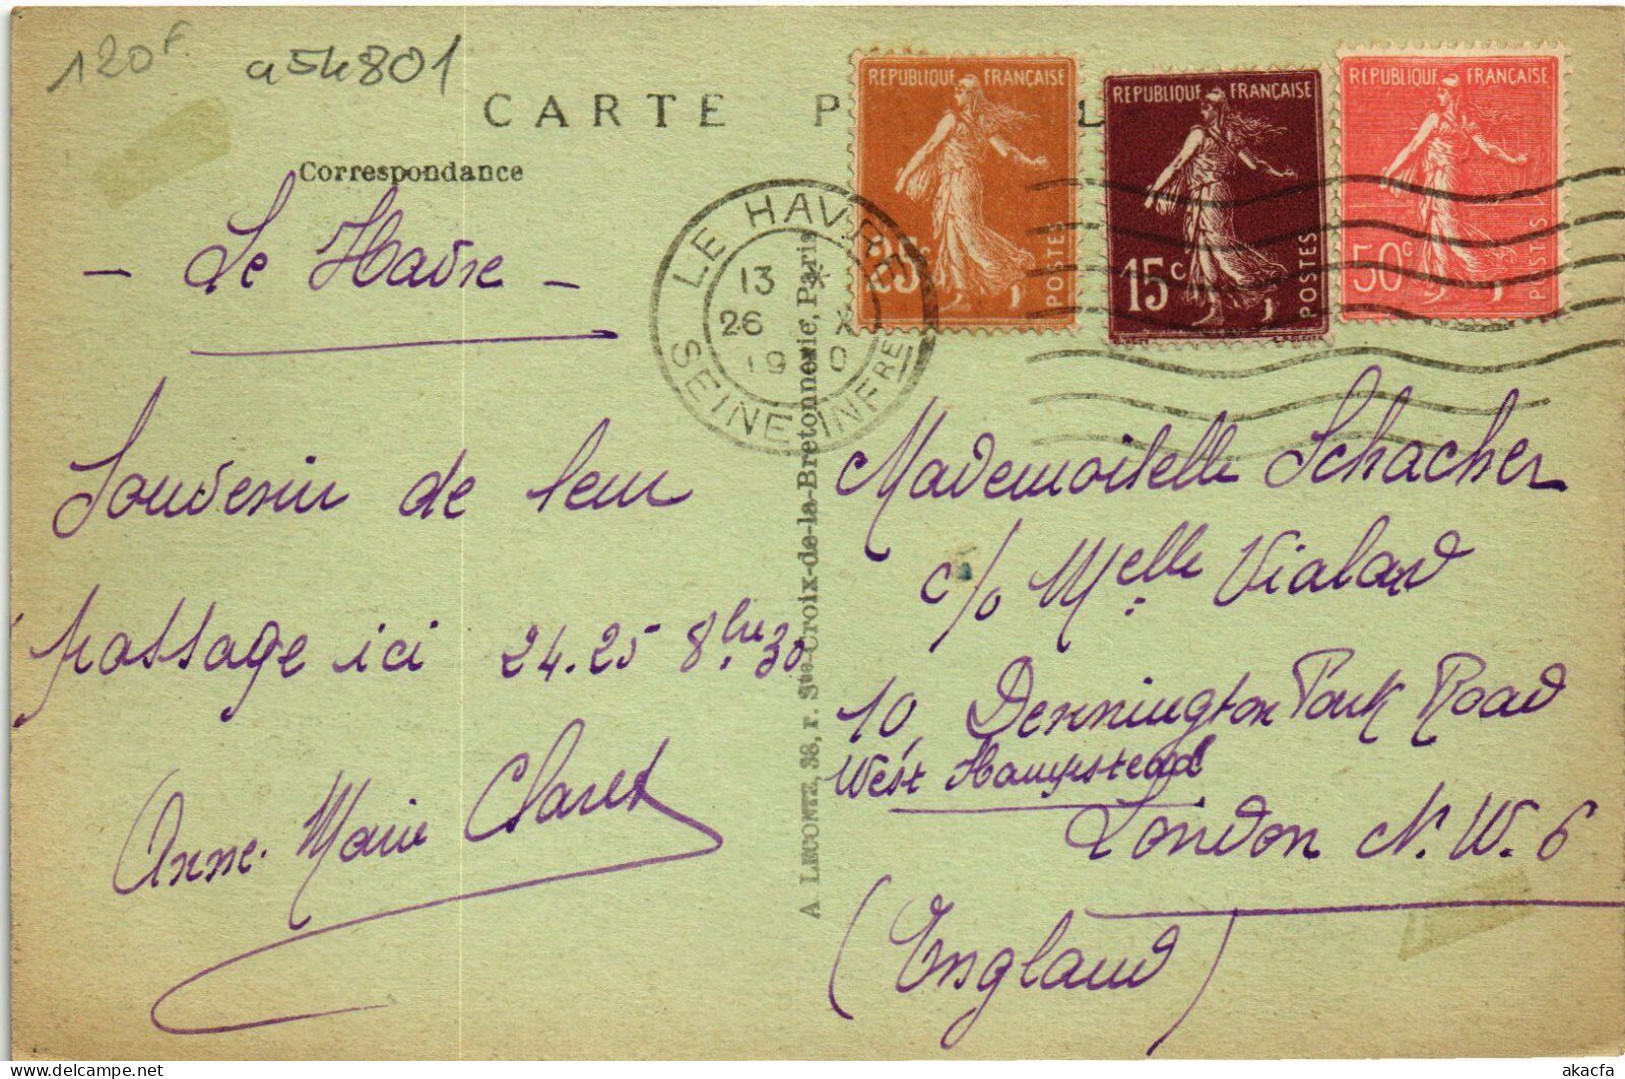 120F
a54801
CARTE P L
Correspondance
- Le Havre -
Souvenir de leur
passage ici 24.25 8bre 30
Anne-Marie Claret
LE HAVRE
13 *
26 X
19 0
SEINE INFRE
REPUBLIQUE FRANÇAISE
25c
POSTES
REPUBLIQUE FRANÇAISE
15c
POSTES
REPUBLIQUE FRANÇAISE
50c
POSTES
A LECONTE, 38, r. Ste-Croix-de-la-Bretonnerie, Paris
Mademoiselle Schacher
c/o Melle Vialard
10, Dennington Park Road
West Hampstead
London N.W. 6
(England)
akacfa